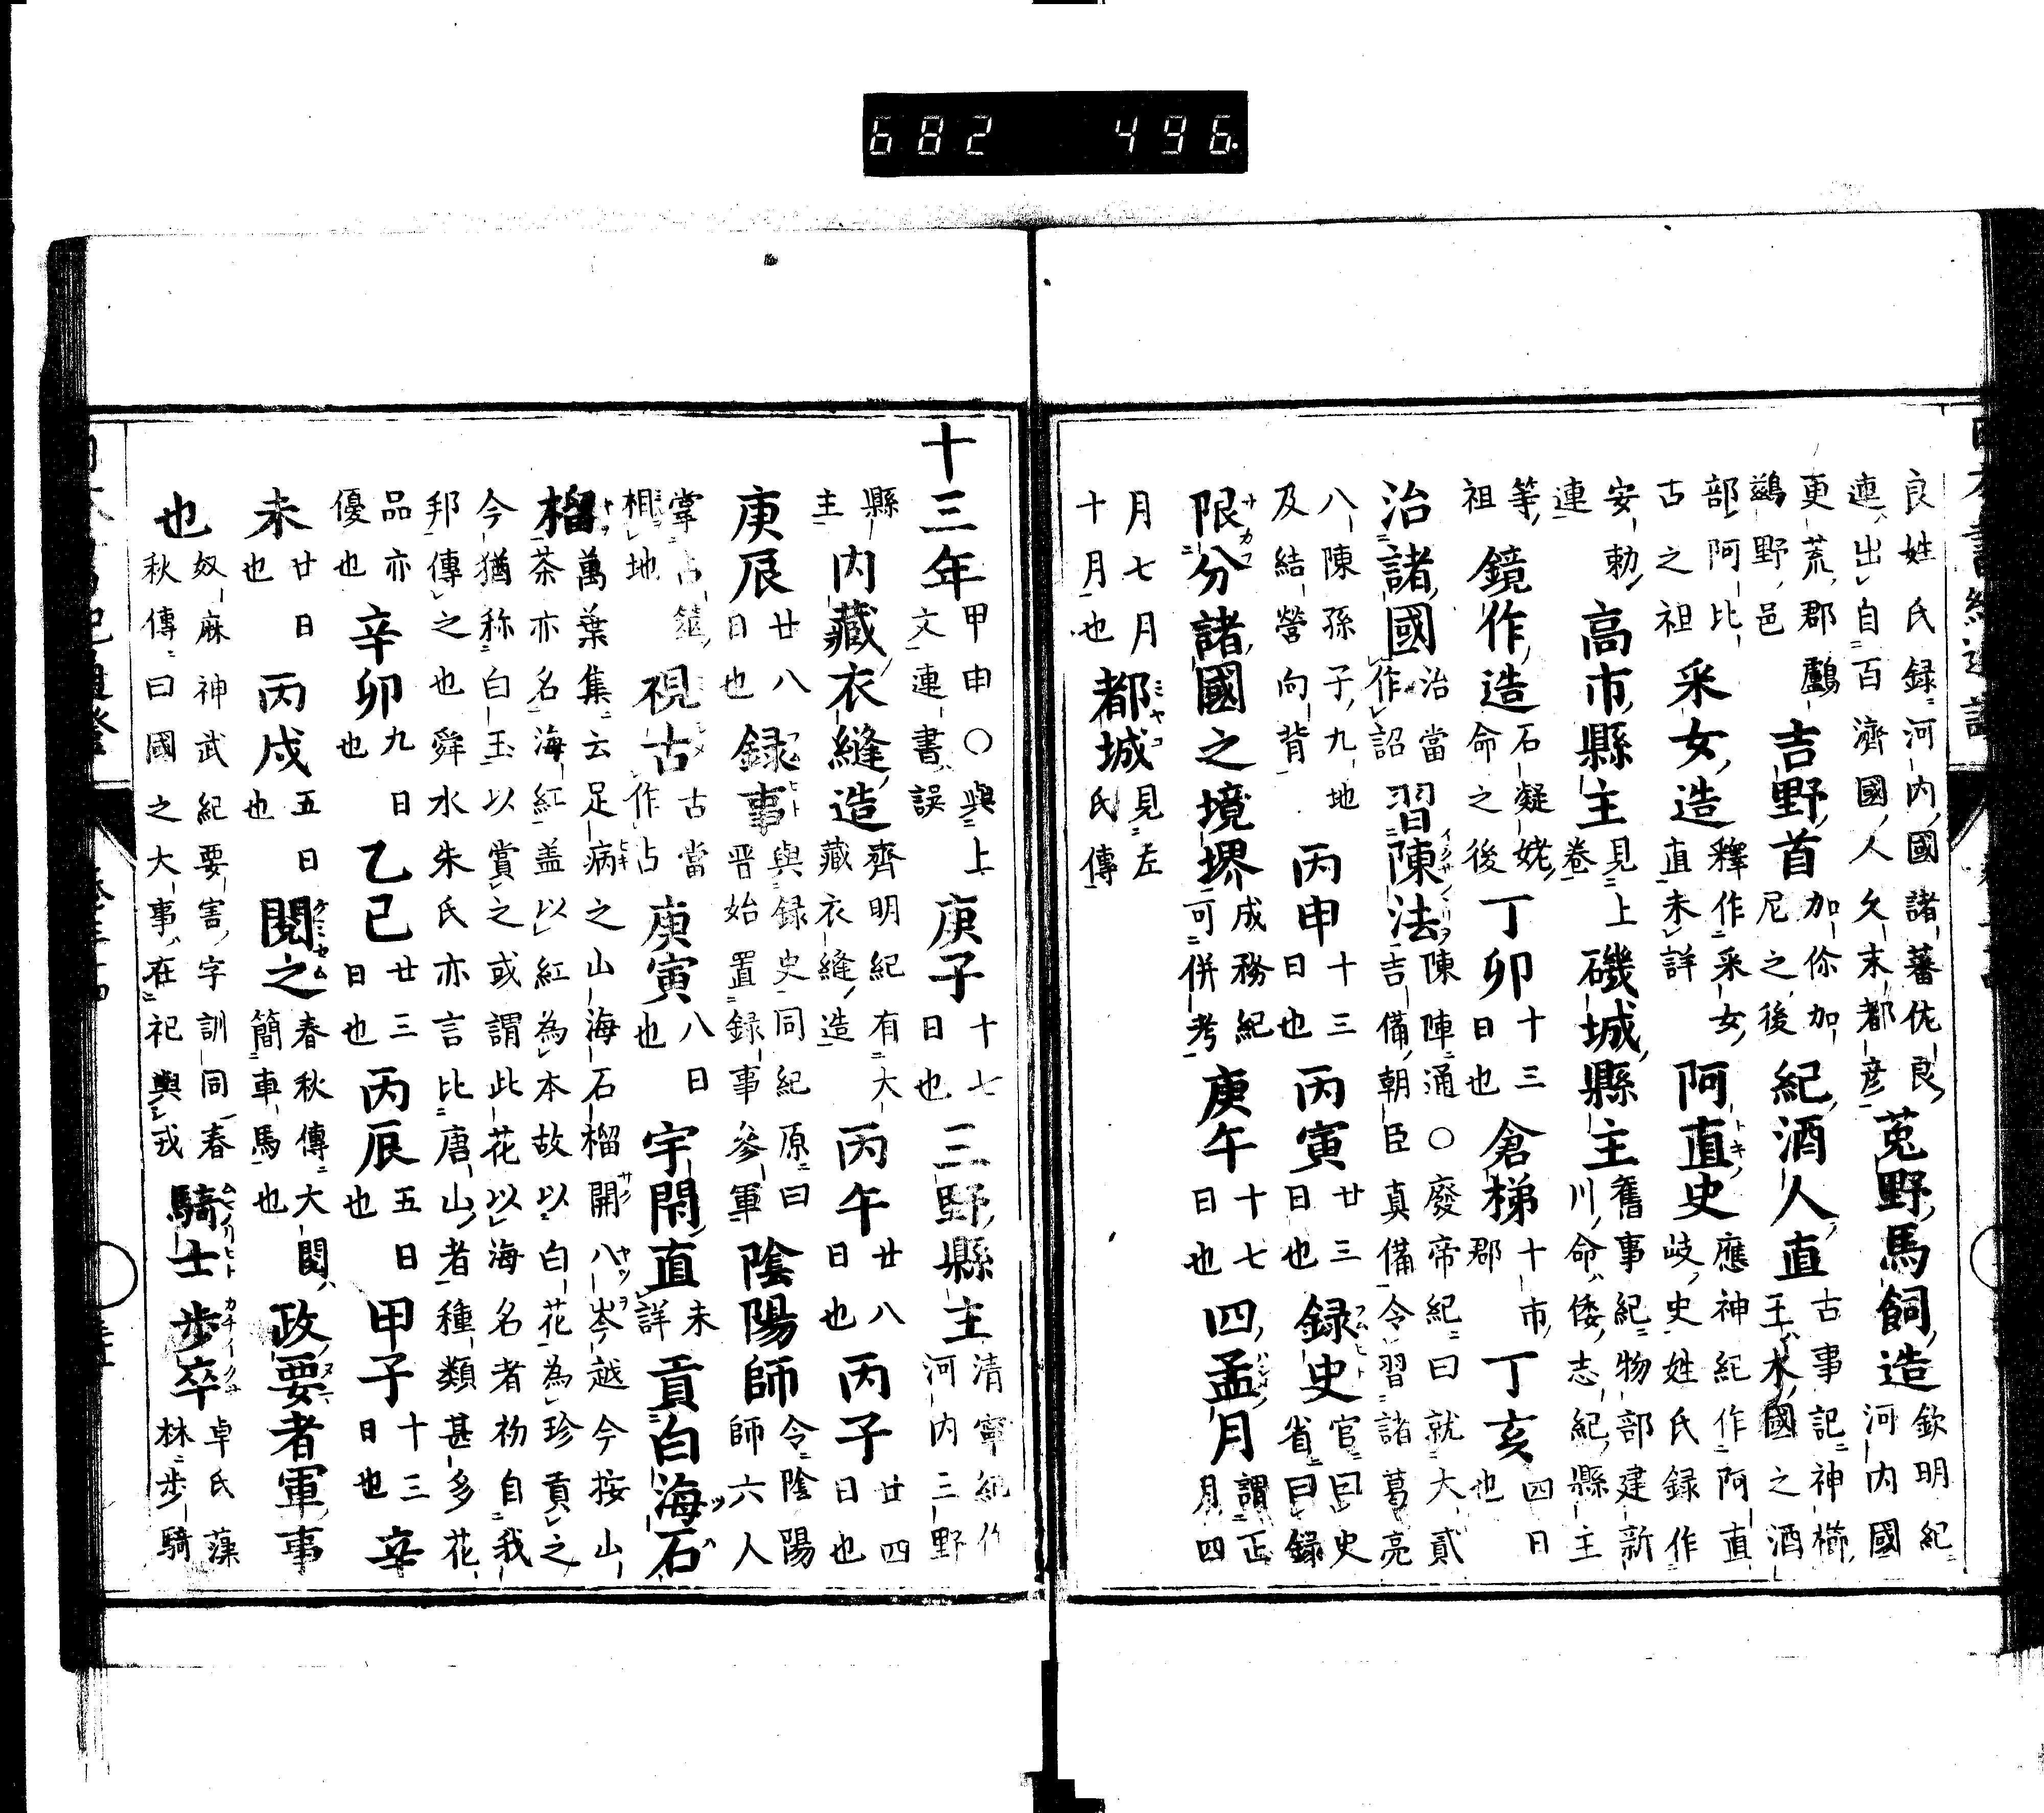 682 496.
良姓氏録河内國諸蕃佐良
連出自百濟國人久末都彦
菟野馬飼造
欽明紀
河内國
更荒郡鸕
鷀野邑
吉野首
加㑚加
尼之後
紀酒人直
古事記神櫛
王木國之酒
部阿比
古之祖
采女造
釋作采女
直未詳
阿直史
應神紀作阿直
岐史姓氏録作
安勅
連
高市縣主
見上
卷
磯城縣主
舊事紀物部建新
川命倭志紀縣主
等
祖
鏡作造
石凝姥
命之後
丁卯
十三
日也
倉梯
十市
郡
丁亥
四日
也
治諸國
治當
作詔
習陳法
陳陣通〇廢帝紀曰就大貳
吉備朝臣真備令習諸葛亮
八陳孫子九地
及結營向背
丙申
十三
日也
丙寅
廿三
日也
録史
官曰史
省曰録
限分諸國之境堺
成務紀
可併考
庚午
十七
日也
四孟月
謂正
月四
月七月
十月也
都城
見左
氏傳
十三年
甲申〇與上
文連書誤
庚子
十七
日也
三野縣主
清寧紀作
河内三野
縣
主
内藏衣縫造
齊明紀有大
藏衣縫造
丙午
廿八
日也
丙子
廿四
日也
庚辰
廿八
日也
録事
與録史同紀原曰
晋始置録事參軍
陰陽師
令陰陽
師六人
掌占筮
相地
視古
古當
作占
庚寅
八日
也
宇閇直
未
詳
貢白海石
榴
萬葉集云足病之山海石榴開八岑越今按山
茶亦名海紅盖以紅為本故以白花為珍貢之
今猶称白玉以賞之或謂此花以海名者初自我
邦傳之也舜水朱氏亦言比唐山者種類甚多花
品亦
優也
辛卯
九日
也
乙巳
廿三
日也
丙辰
五日
也
甲子
十三
日也
辛
未
廿日
也
丙戌
五日
也
閲之
春秋傳大閲
簡車馬也
政要者軍事
也
奴麻神武紀要害字訓同春
秋傳曰國之大事在祀與戎
騎士歩卒
卓氏藻
林歩騎